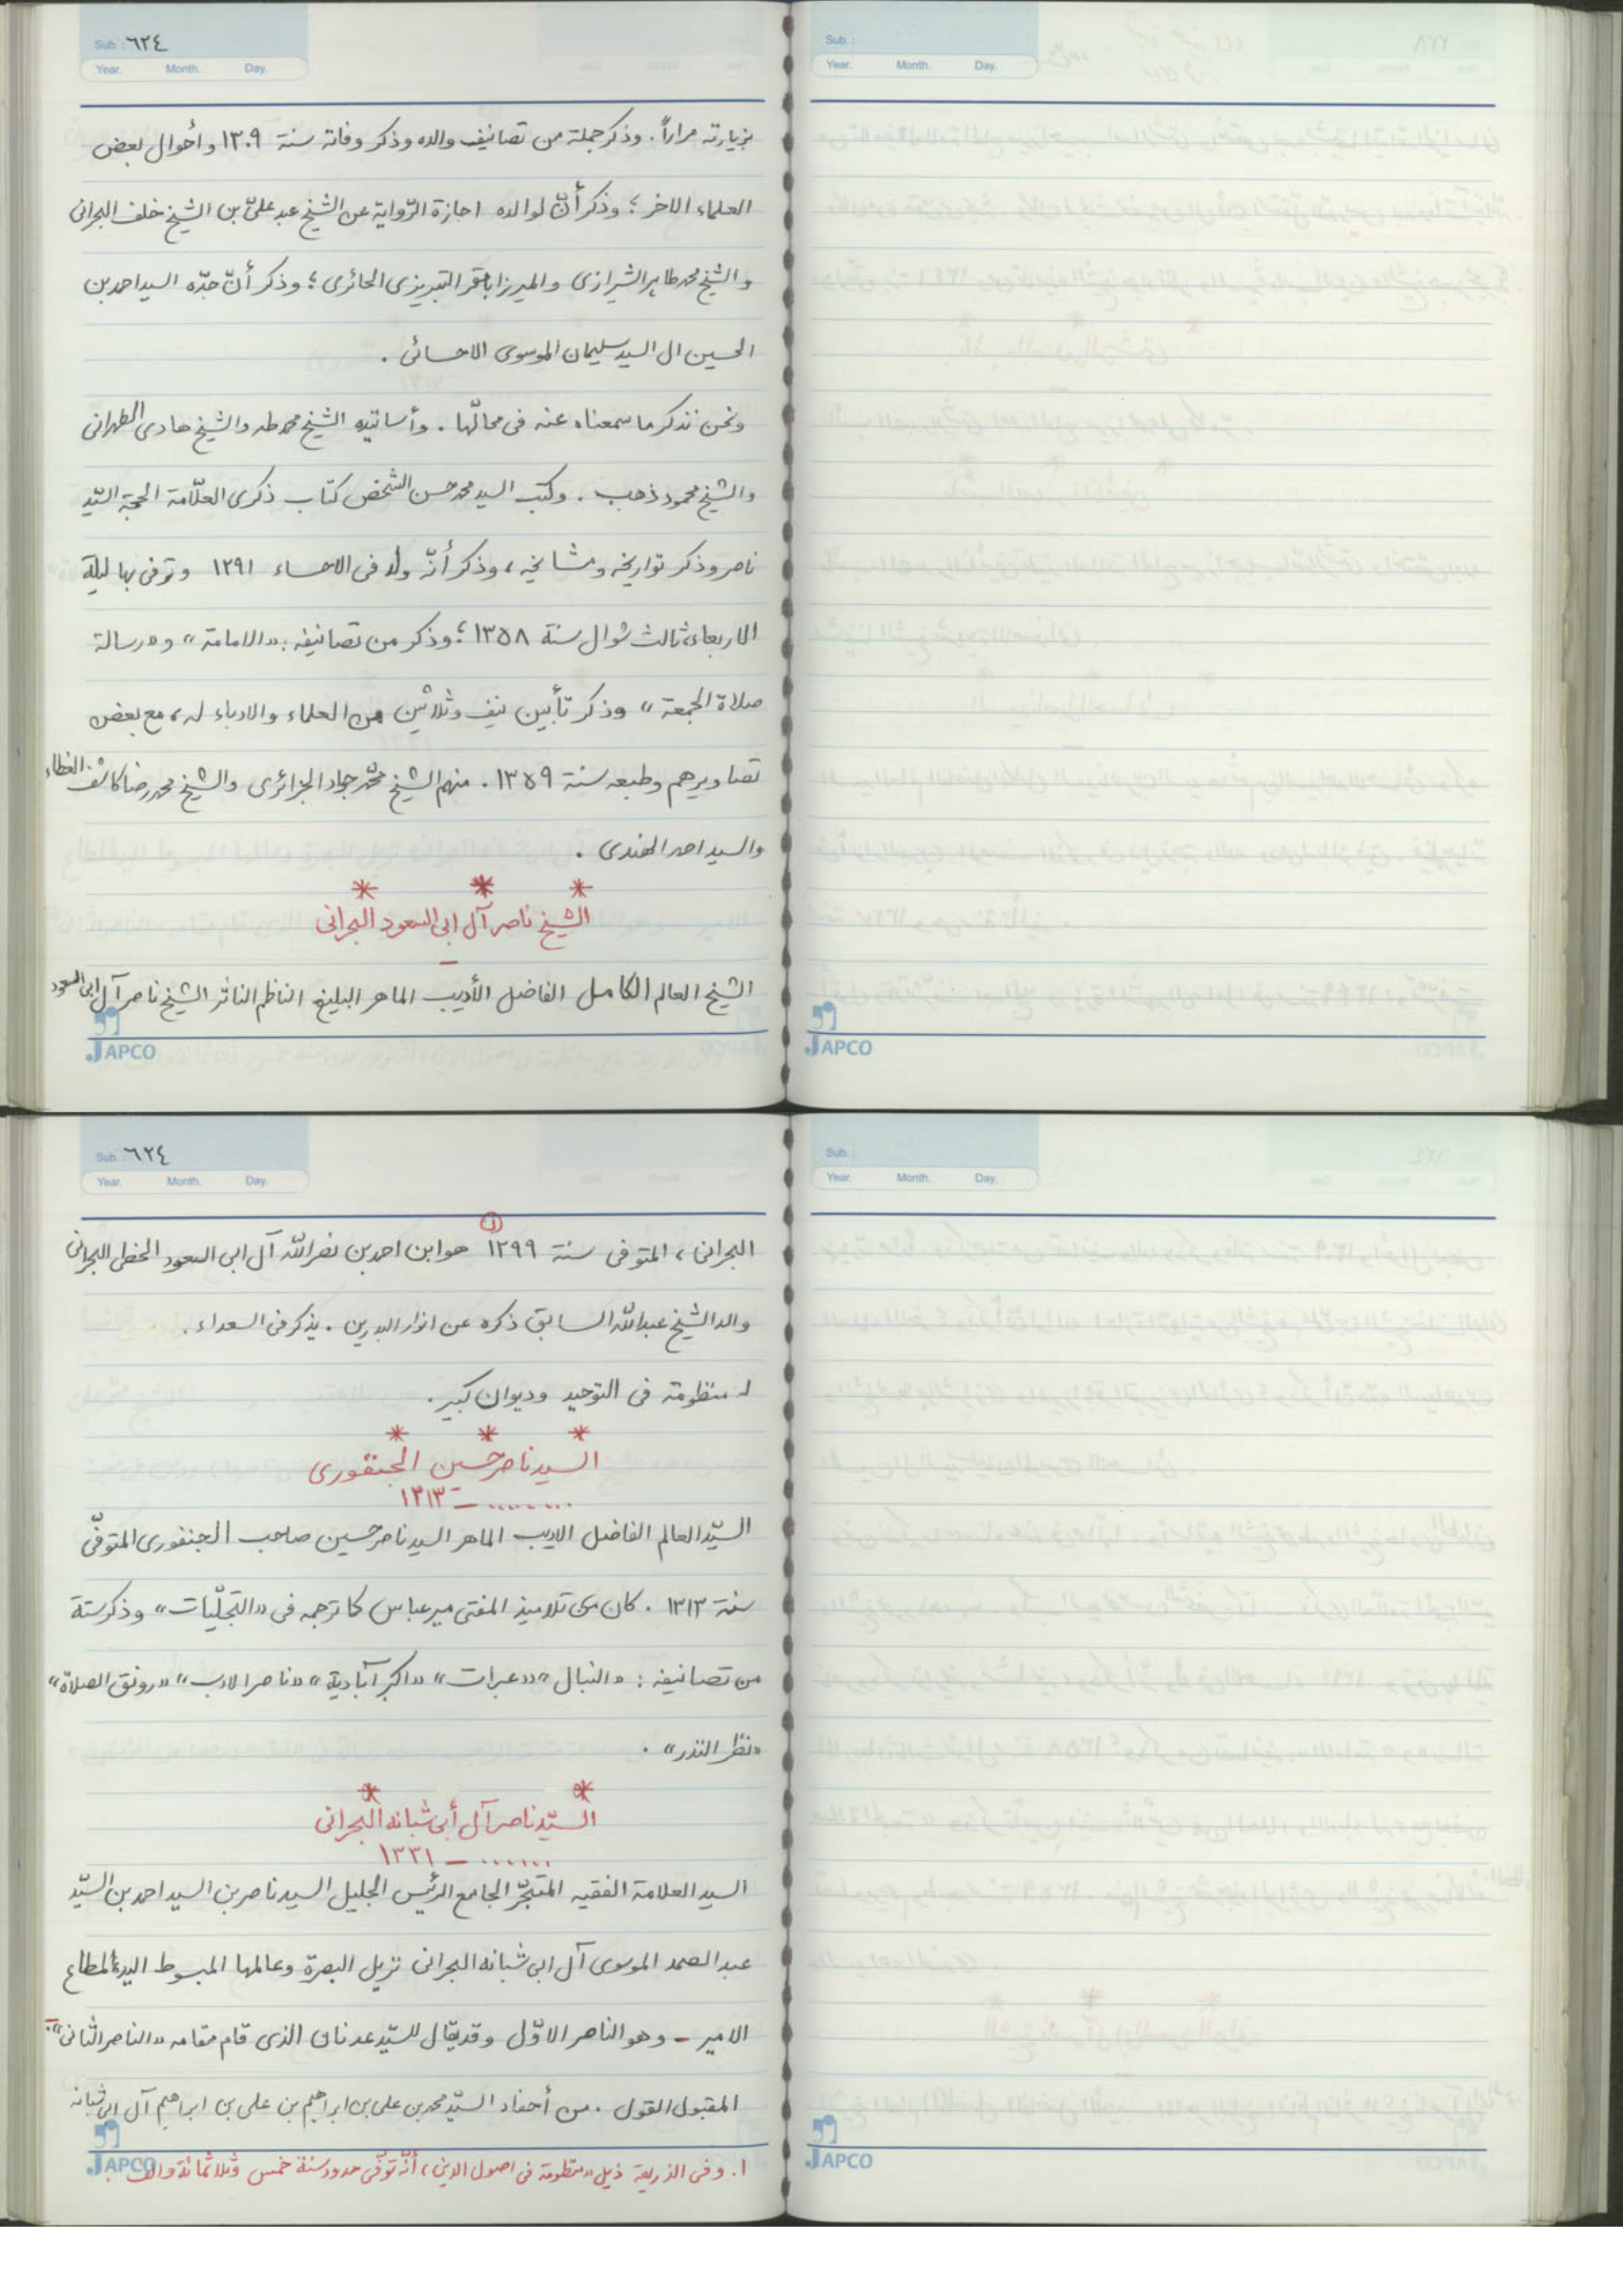 Sub.: ٦٢٤
Year. Month. Day.
بزيارته مراراً. وذكر جملة من تصانيف والده وذكر وفاته سنة ١٣٠٩ وأحوال بعض
العلماء الاخر؛ وذكر أنّ لوالده اجازة الرّواية عن الشيخ عبد عليّ بن الشيخ خلف البحرانى
والشيخ محمد طاهر الشيرازى والميرزا باقر التبريزى الحائرى؛ وذكر أنّ جدّه السيد احمد بن
الحسين ال السيد سليمان الموسوى الاحسائى .
ونحن نذكر ما سمعناه عنه فى محالّها . وأساتيذه الشيخ محمد طه والشيخ هادى الطهرانى
والشيخ محمود ذهب . وكتب السيد محمد حسن الشخص كتاب ذكرى العلّامة الحجة السّيد
ناصر وذكر تواريخه ومشايخه، وذكر أنّه ولد فى الاحساء ١٢٩١ وتوفى بها ليلة
الاربعاء، ثالث شوال سنة ١٣٥٨؛ وذكر من تصانيفه: «الامامة» و«رسالة
صلاة الجمعة» وذكر تأبين نيف وثلاثين من العلماء والادباء له، مع بعض
تصاويرهم وطبعه سنة ١٣٥٩ . منهم الشيخ محمّد جواد الجزائرى والشيخ محمد رضا كاشف الغطاء
والسيد احمد الهندى .
* * *
الشيخ ناصر آل ابى السعود البحرانى
–
الشيخ العالم الكامل الفاضل الأديب الماهر البليغ الناظم الناثر الشيخ ناصر آل ابى السعود
JAPCO
Sub.:
Year. Month. Day.
JAPCO
Sub.: ٦٢٤
Year. Month. Day.
البحرانى، المتوفى سنة ١٢٩٩ (١) هو ابن احمد بن نصر اللّه آل ابى السعود الخطى البحرانى
والد الشيخ عبد اللّه السابق ذكره عن انوار البدرين . يذكر فى السعداء .
له منظومة فى التوحيد وديوان كبير.
* * *
السيد ناصر حسين الجنفورى
........ – ١٣١٣
السيّد العالم الفاضل الاديب الماهر السيد ناصر حسين صاحب الجنفورى المتوفّى
سنة ١٣١٣ . كان من تلاميذ المفتى مير عباس كما ترجمه فى «التجلّيات» وذكر ستة
من تصانيفه: «النبال» «عبرات» «اكبر آبادية» «ناصر الادب» «رونق الصلاة»
«نظر النذر» .
* *
السيّد ناصر آل أبى شبانه البحرانى
....... – ١٣٣١
السيد العلامة الفقيه المتبحّر الجامع الرئيس الجليل السيد ناصر بن السيد احمد بن السيّد
عبد الصمد الموسوى آل ابى شبانه البحرانى نزيل البصرة وعالمها المبسوط اليد، المطاع
الامير – وهو الناصر الاوّل وقد يقال للسيّد عدنان الذى قام مقامه «الناصر الثانى» –
المقبول القول . من أحفاد السيّد محمد بن على بن ابراهيم بن على بن ابراهيم آل ابى شبانه
١. وفى الذريعة ذيل «منظومة فى اصول الدين»، أنّه توفّى حدود سنة خمس وثلاثمائة والف.
JAPCO
Sub.:
Year. Month. Day.
JAPCO